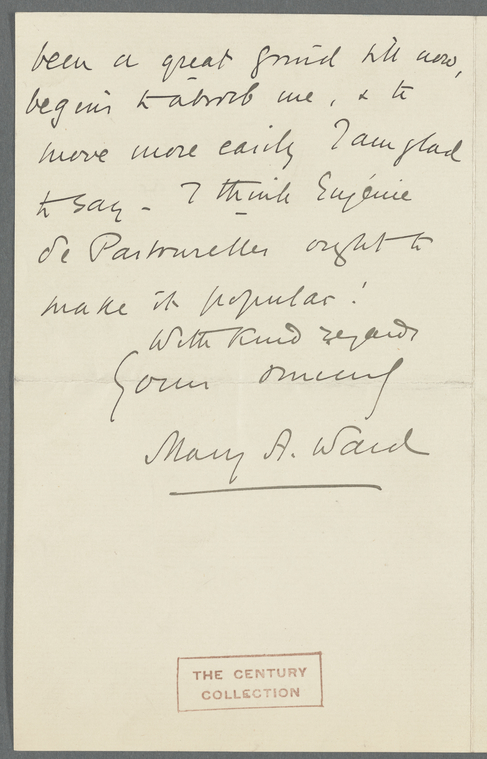 been a great grind till now,
begins to absorb me, & to
move more easily I am glad
to say - I think Eugénie
de Pastourelles ought to
make it popular!
With kind regards
Yours sincerely
Mary A. Ward
THE CENTURY
COLLECTION